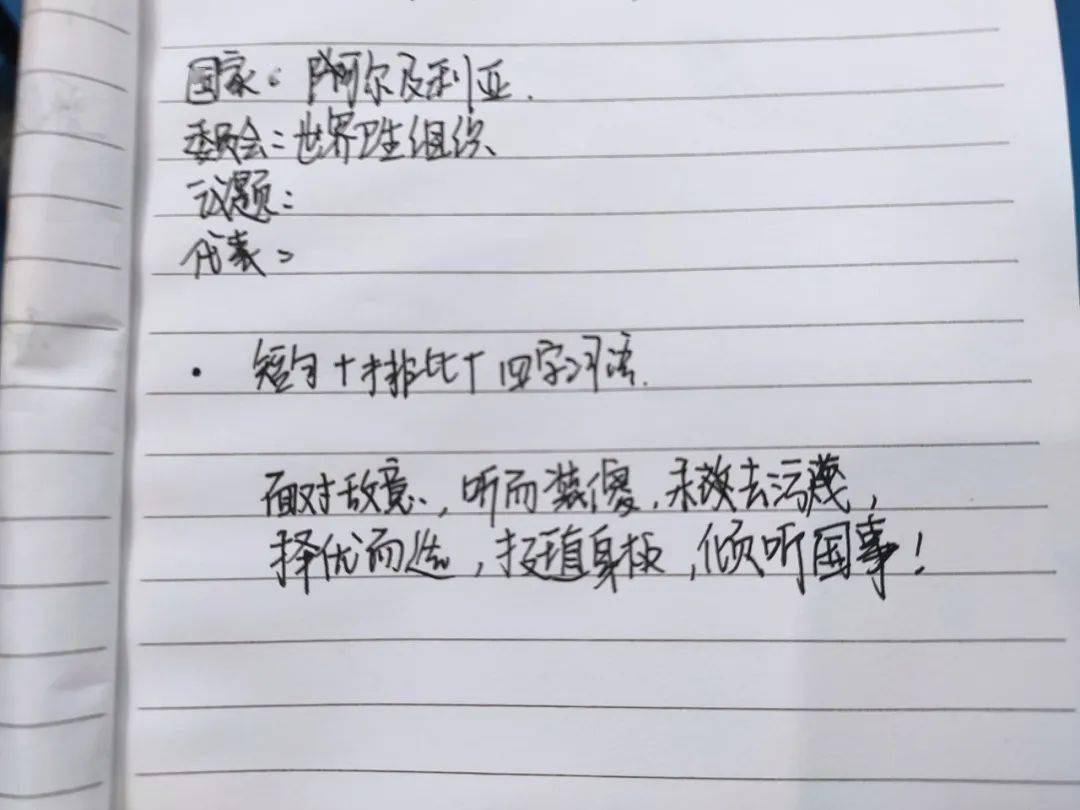 国家：阿尔及利亚.
委员会：世界卫生组织
议题：
代表：
· 短句+排比+四字习语.
面对敌意，听而装傻，去污蔑，
择优而选，挺直身板，倾听国事！